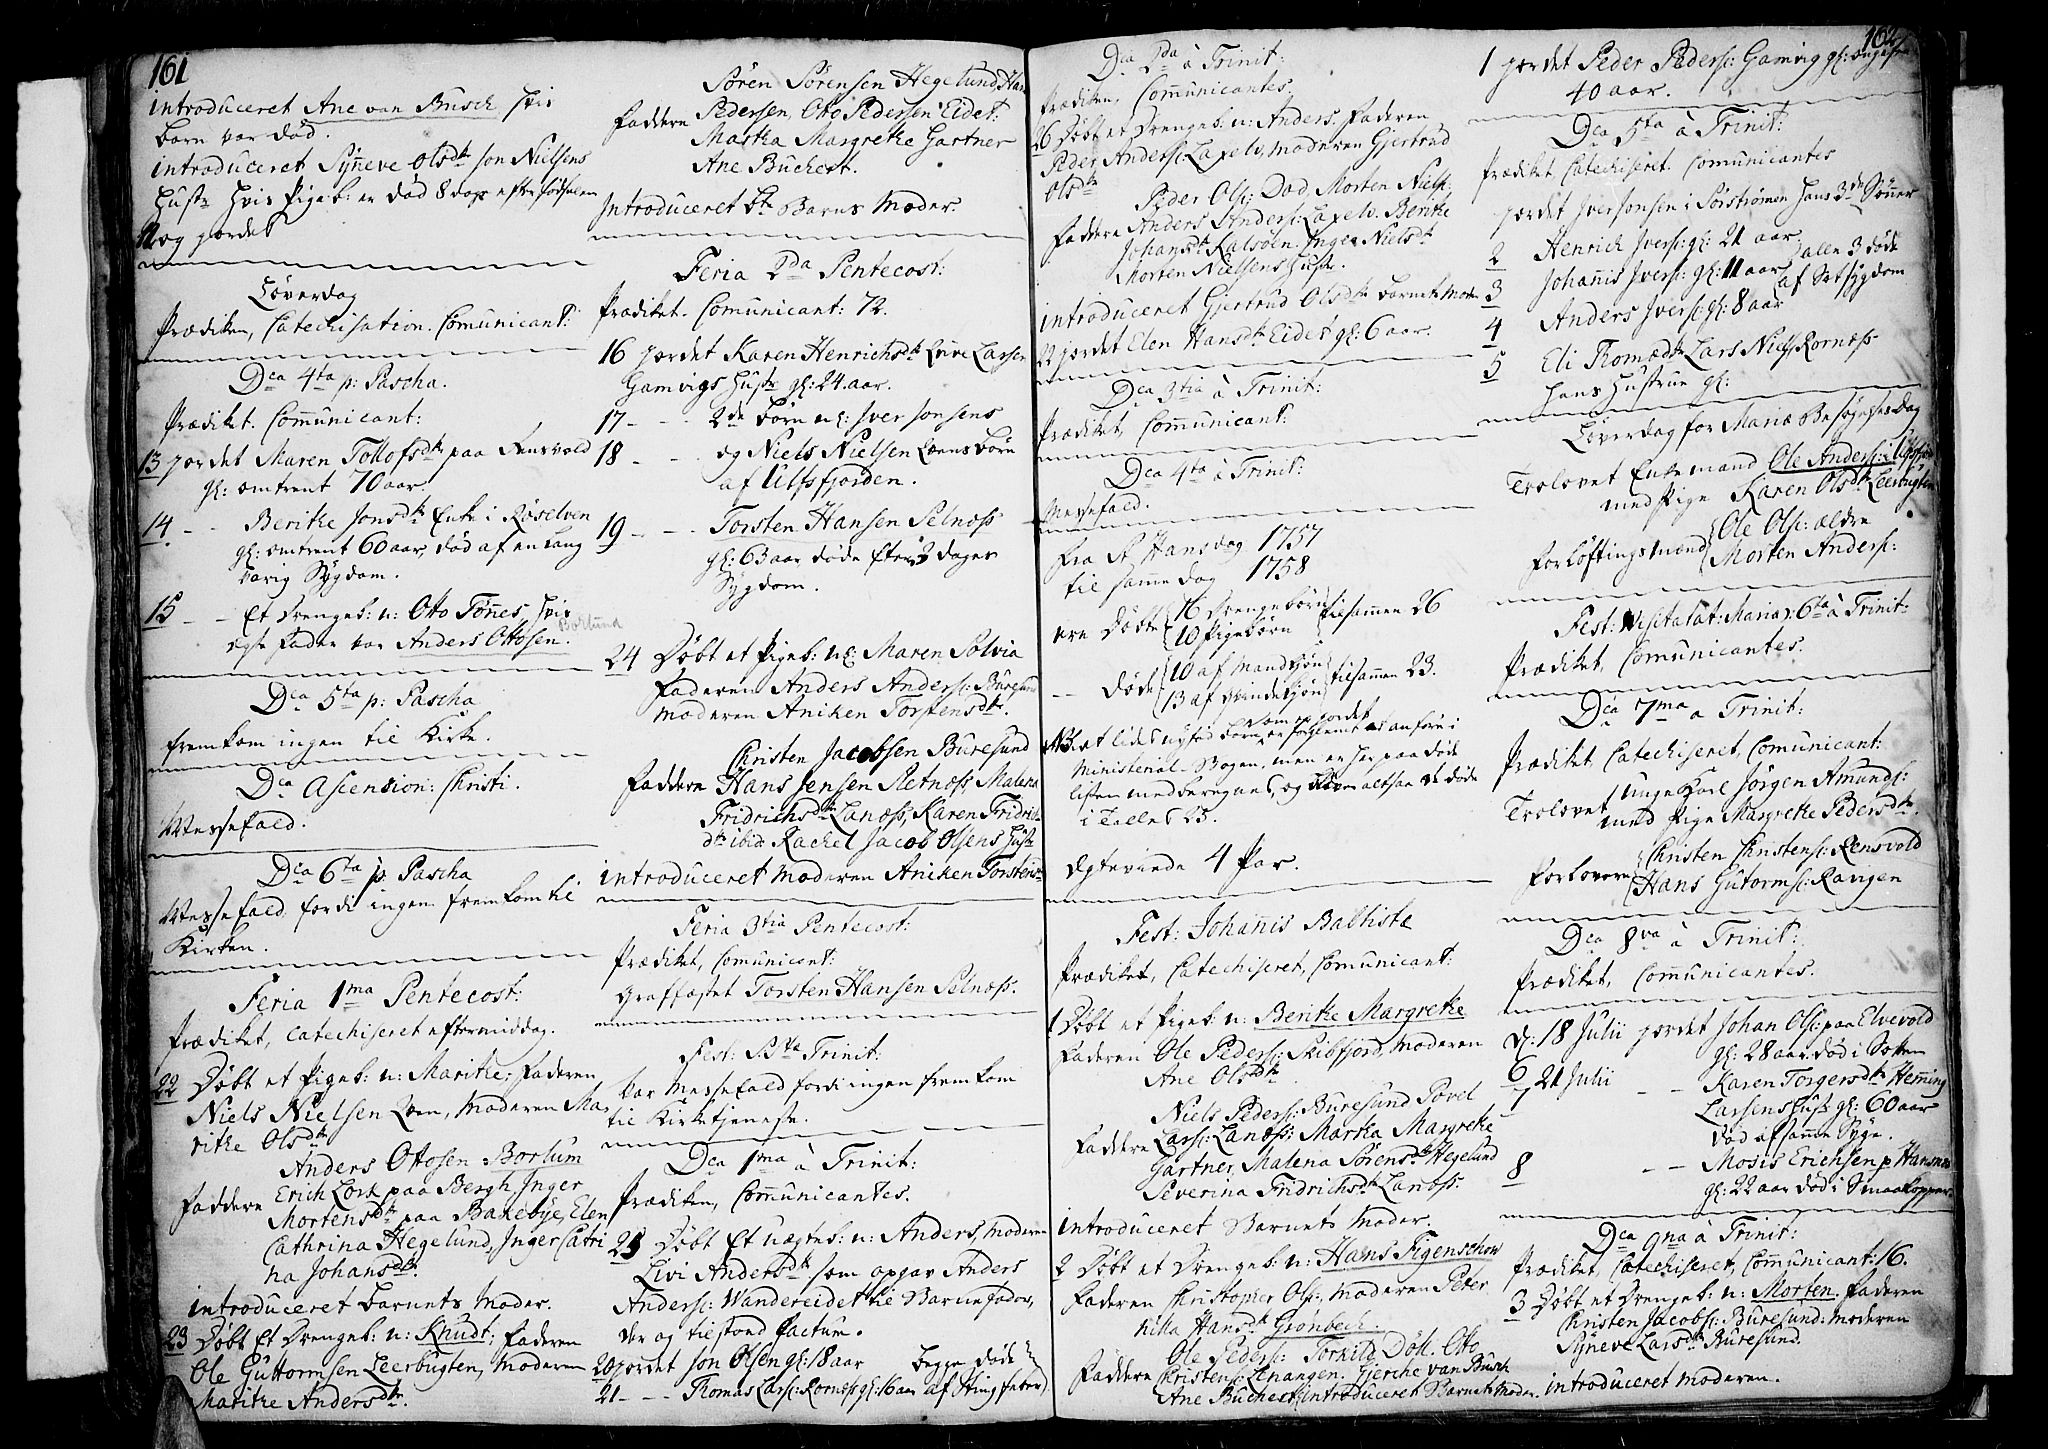 161
introduceret Ane van Busch hvis
barn var død.
introduceret Synneve Olsdtr Jon Nielsens
Hustr hvis Pigeb: er død 8 dage efter fødselen
og jordet
Løverdag
Prædiken, Catechisation. Communicant:
Dca 4ta p: Pascha.
Prædiket. Communicant:
13 jordet Maren Tollofsdtr paa Rensvold
gl: omtrent 70 aar.
14 - - Berithe Jonsdtr Enke i Røselven
gl: omtrent 60 aar, død af en lang
varig Sygdom.
15 - - Et drengeb: n: Otto Tønnes, hvis
ægte fader var Anders Ottosen.
Borlund
Dca 5ta p: Pascha
fremkom ingen til Kirke.
Dca Ascension: Christi.
Messefald.
Dca 6ta p: Pascha
Messefald fordi ingen fremkom til
Kirken.
Feria 1ma Pentecost:
Prædiket, catechiseret eftermiddag.
22 Døbt et Pigeb: n: Marithe; Faderen
Niels Nielsen Løen, Moderen Ma
rithe Olsdtr
Anders Ottosen Borlum
Faddere Erich Lork paa Bergh, Inger
Mortensdtr paa Bakebye, Elen
Cathrina Hegelund, Inger Catri
na Johansdtr.
introduceret barnets Moder.
23 Døbt Et Drengeb: n: Knudt; Faderen
Ole Guttormsen Leerbugten, Moderen
Marithe Andersdtr.
Søren Sørensen Hegelund, Hans
Faddere Pedersen, Otto Pedersen Eidet:
Martha Margrethe Gartner
Ane Buchert.
Introduceret bte Barns Moder.
Feria 2da Pentecost:
Prædiket. Communicant: 72.
16 jordet Karen Henrichsdtr Iver Larsen
Gamvigs Hustr gl: 24 aar.
17 - - - 2de børn nl: Iver Jonsens
18 - - og Niels Nielsen Løens børn
af Ulfsfjorden.
19 - - Torsten Hansen Selnæss
gl: 63 aar døde efter 3 dages
Sygdom.
24 Døbt et Pigeb: nl: Maren Solvia
Faderen Anders Anders: Buresund
Moderen Aniken Torstensdtr.
Christen Jacobsen Buresund
Faddere Hans Jensen Sletnæss, Malena
Fridrichsdtr Lanæss, Karen Fridrich
dtr ibid: Rachel Jacob Olsens Hustr
introduceret Moderen Aniken Torstensdtr
Feria 3tia Pentecost:
Prædiket, Communicant:
Graffæstet Torsten Hansen Selnæss.
Fest: S.S.tæ Trinit:
var Messefald fordi ingen fremkom
til Kirketjeneste.
Dca 1ma à Trinit:
Prædiken, Communicantes.
25 Døbt Et uægteb: n: Anders, moderen
Livi Andersdtr som opgav Anders
Anders: Wandereidet til Barnefader,
der og tilstoed factum.
20 jordet Jon Olsen gl: 18 aar begge døde
21 - - Thomas Lars: Kornæs gl: 16 aar af Stingfeber
Dca 2da à Trinit:
Prædiken, Communicantes.
26 Døbt et Drengeb: n: Anders. Faderen
Peder Anders: Laxelv, Moderen Gjertrud
Olsdtr
Peder Ols: Dad, Morten Niels:
Faddere Anders Anders: Laxelv. Berithe
Johansdtr Kalsøen. Inger Nielsdtr
Morten Nielsens Hustr.
introduceret Gjertrud Olsdtr barnets Moder
22 jordet Elen Hansdtr Eidet gl: 6 aar.
Dca 3tia à Trinit:
Prædiket, Communicant:
Dca 4ta à Trinit:
Messefald.
Fra St Hansdag 1757
til samme dag 1758
ere Døbte 16 Drengebørn tilsammen 26
10 Pigebørn
- - Døde 10 af Mandkjøn tilsammen 23.
13 af Qvindekjøn
NB: et lidet uægte barn, som er jordet er forglemt at anføre i
Ministerial-Bogen, men er her paa døde
listen medberegnet, og altsaa de døde
i Tallet 23.
Ægteviede 4 Par.
Fest: Johannis Babtistæ
Prædiket, Catechiseret, Communicant:
1 Døbt et Pigeb: n: Berithe Margrethe
Faderen Ole Peders: Skibfjord, Moderen
Ane Olsdtr
Niels Peders: Buresund Povel
Faddere Lars: Lanæss: Martha Margrethe
Gartner, Malena Sørensdtr Hegelund
Severina Fridrichsdtr Lanæss.
introduceret Barnets Moder.
2 Døbt et Drengeb: n: Hans Figenschow
Faderen Christopher Ols: Moderen Peter
nilla Hansdtr Grønbech.
Ole Peders: Torkild Doll. Otto
Faddere Christens: Lenangen. Gjerthe van Busch
Ane Buchert introduceret Barnets Moder.
162
1 jordet Peder Peders: Gamvig gl: ongefer
40 aar.
Dca 5ta à Trinit:
Prædiket, Catechiseret. Communicantes
jordet Iver Jonsen i Sørstrømen hans 3de Sønner
2 Henrich Ivers: gl: 21 aar
3 Johannis Ivers: gl: 11 aar alle 3 døde
4 Anders Ivers: gl: 8 aar af Sotsygdom
5 Eli Thomædtr Lars Niels: Kornæss
hans Hustrue gl:
Løverdag for Mariæ Besøgelses Dag
Trolovet Enkemand Ole Anders: i Ulfsfjor
med Pige Karen Olsdtr Leerbugten
Forløftingsmænd Ole Ols: ældre
Morten Anders:
Fest: Visitatat: Mariæ, 6ta à Trinit:
Prædiket, Communicantes.
Dca 7ma à Trinit:
Prædiket, Catechiseret, Communicant:
Trolovet unge Karl Jørgen Amunds:
med Pige Margrethe Pedersdtr.
Forlovere Christen Christens: Rensvold
Hans Gutorms: Ravigen
Dca 8va à Trinit:
Prædiket, Communicantes.
D: 18 Julii jordet Johan Ols: paa Elvevold
gl: 28 aar død i Sotten
6
7 21 Julii - - Karen Torgersdtr Hemming
Larsens Hustr gl: 60 aar
død af samme Syge.
8 - - Mosis Erichsen p Hansnæs
gl: 22 aar død i Smaakopper.
Dca 9na à Trinit:
Prædiket, Catechiseret, Communicant: 16.
3 Døbt et Drengeb: n: Morten. Faderen
Christen Jacobs: Buresund: moderen
Synneve Larsdtr Buresund.
introduceret moderen.